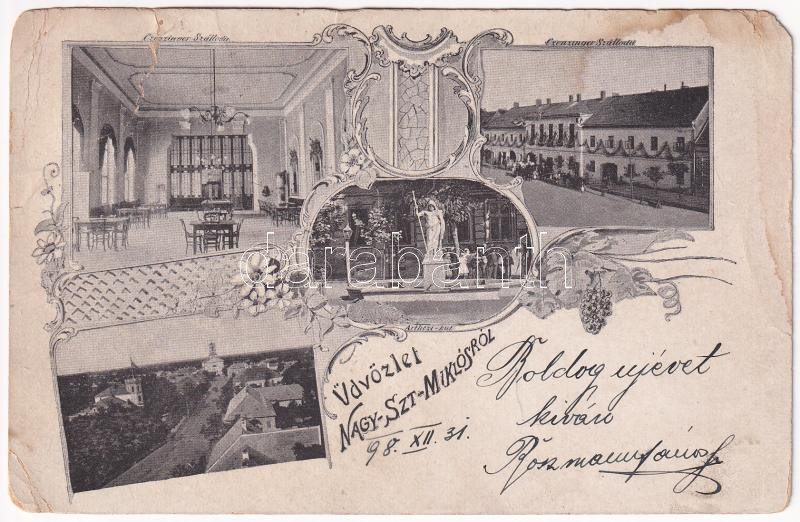 Czenzinger Szálloda
Czenzinger Szálloda
Arthézi-kut
Üdvözlet
NAGY-SZT-MIKLÓSRÓL
98. XII. 31.
Boldog ujévet
kiván
Roszmann János
darabanth